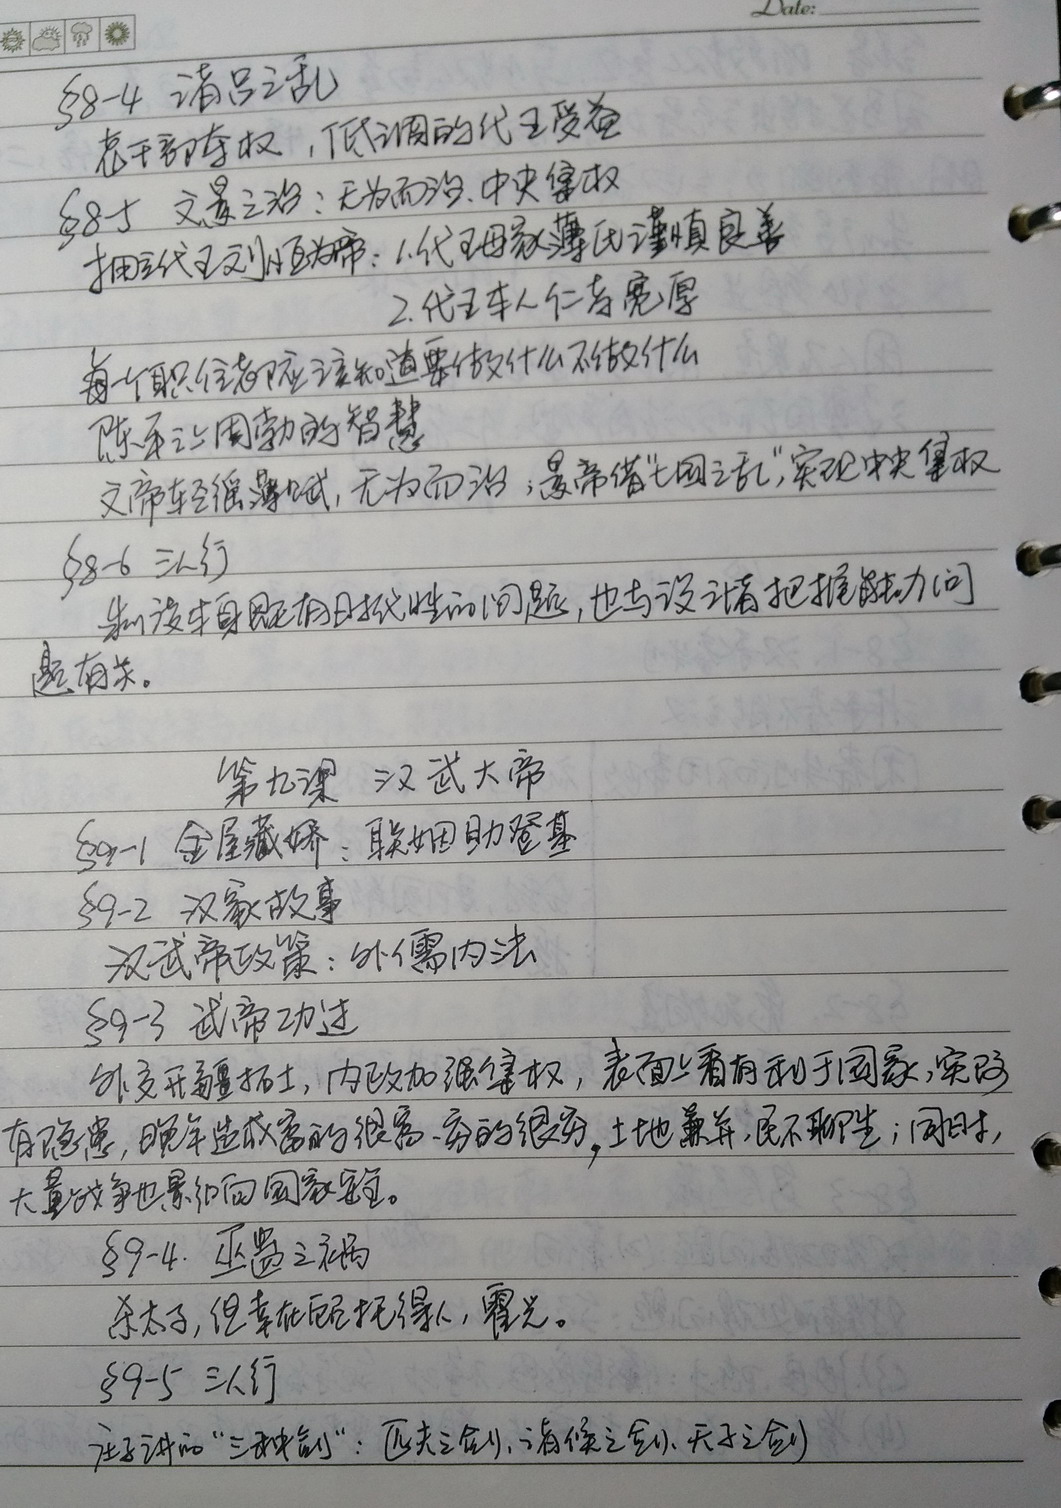 Date:
§8-4 诸吕之乱
老干部夺权，低调的代王受益
§8-5 文景之治：无为而治、中央集权
拥立代王刘恒为帝：1.代王母家薄氏谨慎良善
2.代王本人仁孝宽厚
每一个职位都应该知道要做什么不做什么
陈平让周勃的智慧
文帝轻徭薄赋，无为而治；景帝借“七国之乱”，实现中央集权
§8-6 三人行
制度本身既有时代性的问题，也与设计者把握能力问
题有关。
第九课 汉武大帝
§9-1 金屋藏娇：联姻助登基
§9-2 汉家故事
汉武帝政策：外儒内法
§9-3 武帝功过
外交开疆拓土，内政加强集权，表面上看有利于国家，实际
有隐患，晚年造成富的很富、穷的很穷，土地兼并，民不聊生；同时，
大量战争也影响国家安全。
§9-4. 巫蛊之祸
杀太子，但幸在后托得人，霍光。
§9-5 三人行
庄子讲的“三种剑”：匹夫之剑、诸侯之剑、天子之剑